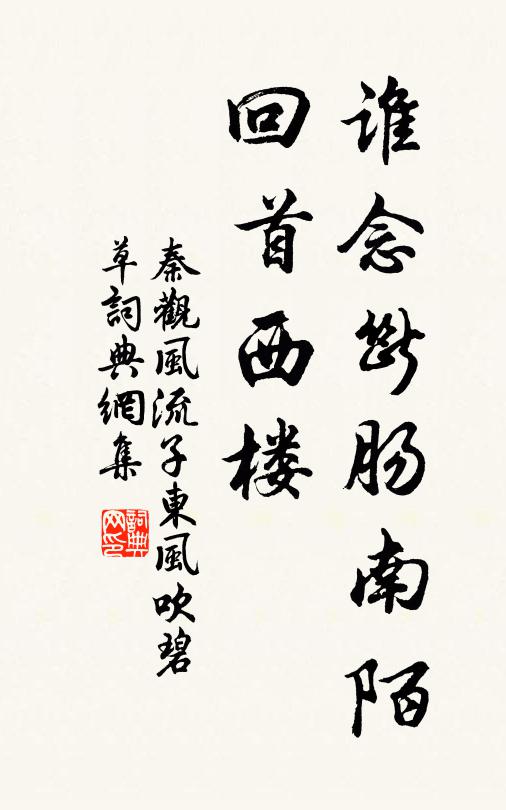 谁念断肠南陌
回首西楼
秦觀風流子東風吹碧
草詞典網集
詞典
网印